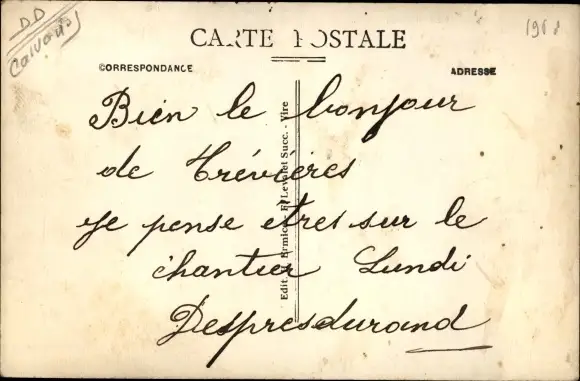 DD
Calvados
CARTE POSTALE
CORRESPONDANCE
ADRESSE
Bien le bonjour
de Trévières
Je pense etres sur le
chantier Lundi
Despresdurand
Edit. Ermice - F. Levalet Succ. - Vire